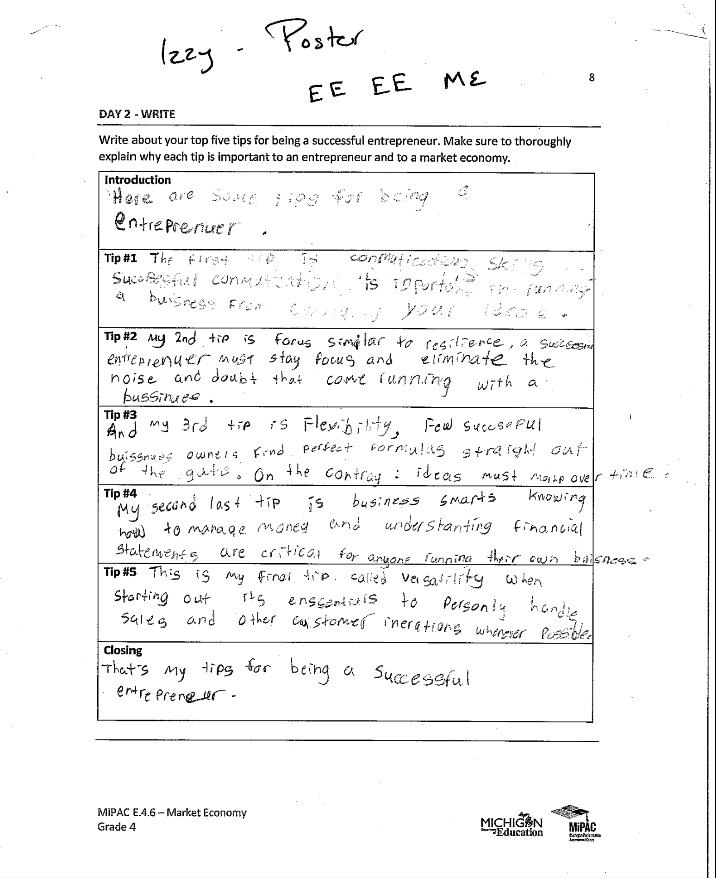 Izzy - Poster
EE EE ME
8
DAY 2 - WRITE
Write about your top five tips for being a successful entrepreneur. Make sure to thoroughly
explain why each tip is important to an entrepreneur and to a market economy.
Introduction
Here are some tips for being a
entreprenuer .
Tip #1 The first tip is conmutication skills
Sucessful conmutication is inportant in running
a buisness from your ideas .
Tip #2 My 2nd tip is focus similar to resilience, a
entreprenuer must stay focus and eliminate the
noise and doubt that come running with a
bussinues .
Tip #3
And my 3rd tip is Flexibility, Few succseful
buissnues owners find perfect formulas straight out
of the gate. On the contray : ideas must over time .
Tip #4
My second last tip is business smarts knowing
how to manage money and understanting financial
statements are critical for anyone running their own buisness .
Tip #5 This is my final tip. called versatility when
Starting out its to Personly handle
sales and other customer inerations whenever Possible
Closing
That's my tips for being a Successful
entrepreneuer .
MiPAC E.4.6 – Market Economy
Grade 4
MICHIGAN
Education
MiPAC